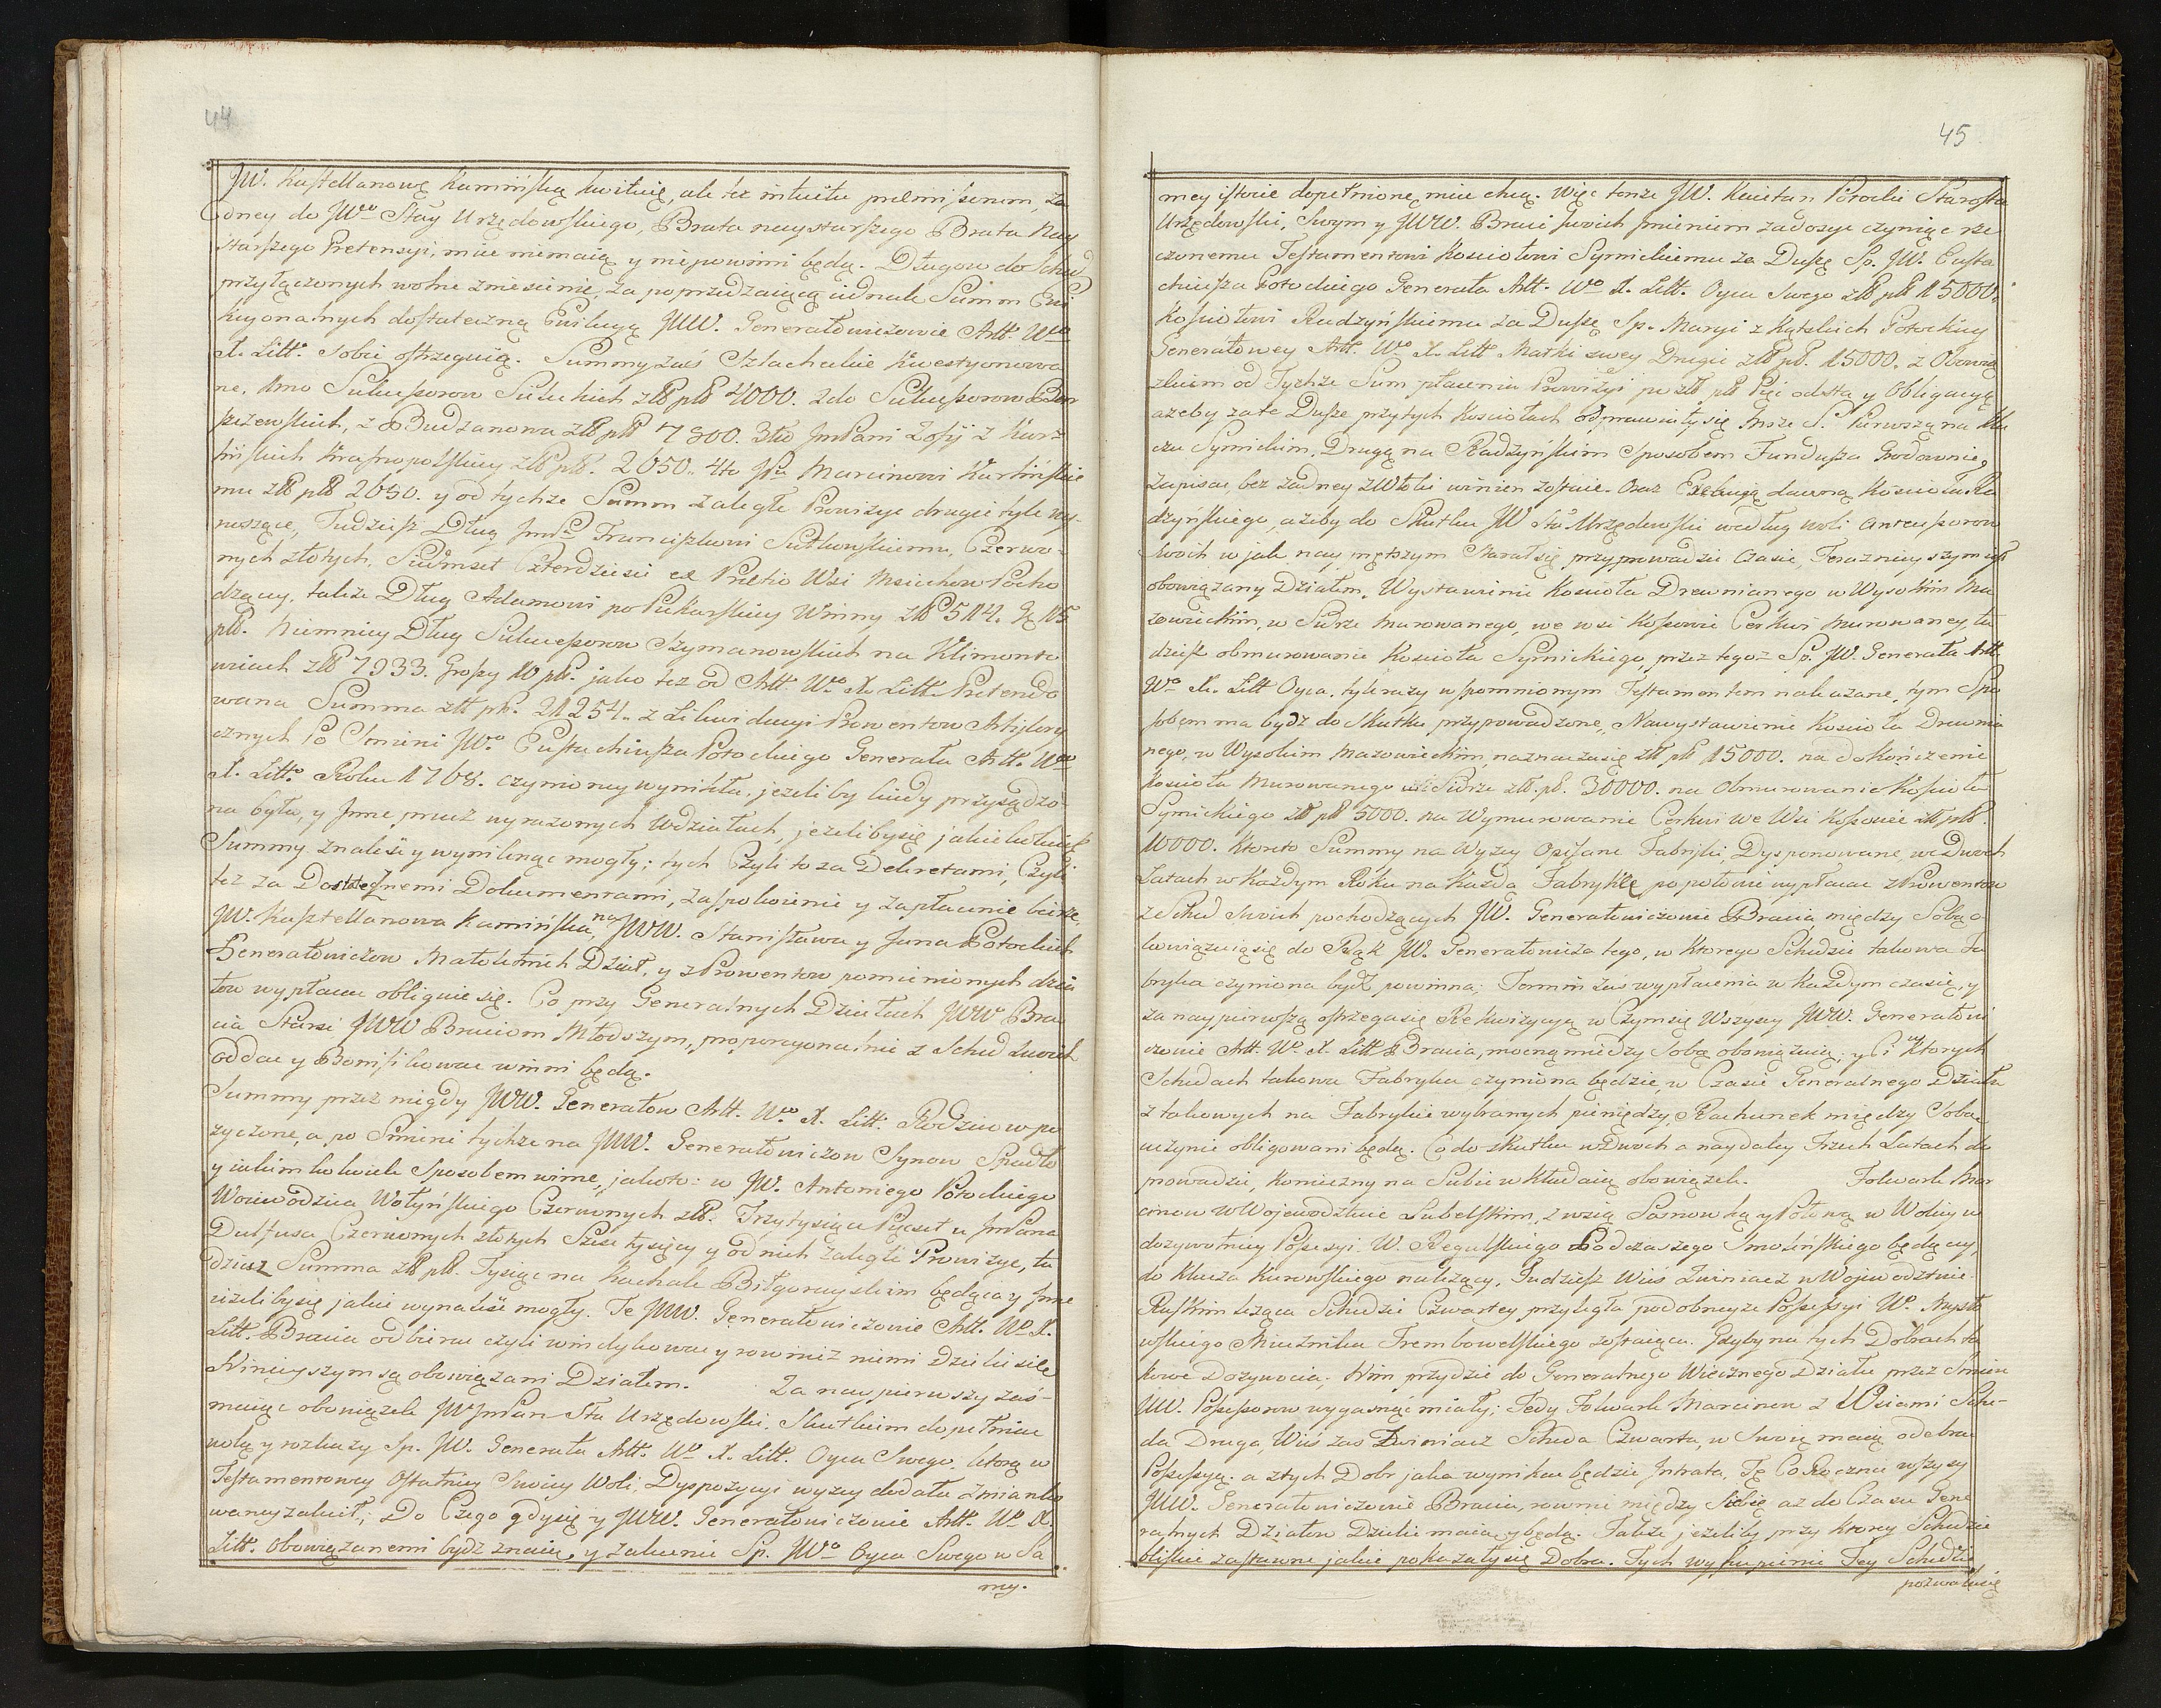 44
JW. Kasztellanowę Kamińską kwituię, ale też intuitu praemissorum, ża
dney do JWgo Stty Urzędowskiego, Brata naystarszego Brata Nay
starszego Pretensyi, mieć niemaią y nie powinni będą. Długow do Sched
przyłączonych wolne zniesienie, za poprzedzaiącą iednak Summ Ewi
kcyonalnych dostateczną Ewikcyą JWW. Generałowiczowie Artt. Wgo
X. Litt. sobie ostrzeguią. Summy zaś Szlacheckie kwestyonowa
ne, 1mo Sukcessorow Suluckich złł pll 4000. 2do Sukcessorow
szewskich, z Budzanowa złł pll 7300. 3tio JmPani Zofij z Kur
hińskich Krasnopolskiey złł pll. 2050. 4to JPu Marcinowi Kurhińskie
mu złł pll 2050. y od tychże Summ zaległe Prowizye drugie tyle wy-
noszące, Tudzież Dług JmPu Franciszkowi Sułkowskiemu, Czerwo-
nych złotych, Siedmset Czterdzieści ex Pretio Wsi Msciechow Pocho
dzący, także Dług Adamowi po Piekarskiey Winny złł 514. g 15
pll. Niemniey Dług Sukcessorow Szymanowskich na Klimonto
wicach złł 7933. Groszy 10 pll. jako też od Artt. Wgo X. Litt. Pretendo
wana Summa złł pll. 21254. z Likwidacyi Prowentow Artyllery
cznych Po Smierci JWo Eustachiusza Potockiego Generała Artt. Wgo
X. Litt. Roku 1768. czynioney wynikła, jeżeliby kiedy przysądzo-
na była, y Inne precz wyrażonych Udziałach, jeżeliby się jakiekolwiek
Summy znaleść y wyniknąć mogły; tych Czyli to za Dekretami, Czyli
też za Dostate[cznemi] Dokumentami, zaspokoienie y zapłacenie bierze
JW. Kasztellanowa Kamińska, na JWW. Stanisława y Jana Potockich
Generałowiczow Małoletnich Dział, y z Prowentow pomienionych dzia
łow wypłacać obliguie się. Co przy Generalnych Działach JWW Bra
cia Starsi JWW Braciom Młodszym, proporcyonalnie z Sched swoich
Oddać y Bonifikować winni będą.
Summy przez niegdy JWW. Generałow Artt. Wgo X. Litt. Rodzicow po
zyczone, a po Smierci tychże na JWW. Generałowiczow Synow Spadłe
y iakimkolwiek Sposobem winne, jakoto: u JW. Antoniego Potockiego
Woiewodzica Wołyńskiego Czerwonych złł. Trzytysiące Pięcset u JmPana
Dulfusa Czerwonych złotych Sześc tysięcy y od nich zaległe Prowizye, tu
dziesz Summa złł pll. Tysiąc na Kachale Biłgorayskim będąca y Inne
ieżeliby się jakie wynaleść mogły. Te JWW. Generałowiczowie Artt. Wo X.
Litt. Bracia odbierać czyli windykować y rownież niemi dzielić się
Ninieyszym są obowiązani Działem. Za naypierwszy zaś-
maiąc obowiązek JWJmPan Stta Urzędowski, Skutkiem dopełnić
wolę y rozkazy Sp. JW. Generała Artt. Wo X. Litt. Oyca Swego, którą w
Testamentowey Ostatniey Swoiey Woli, Dyspozycyi wyzey do datu zmianko
waney zalecił; Do Czego gdy się y JWW. Generałowiczowie Artt. Wo X.
Litt. Obowiązanemi bydz znaią, y zalecenie Sp. JWo Oyca Swego w Sa
mey.
45
mey istocie dopełnione mieć chcą. Więc tenże JW. Kaietan Potocki Starosta
Urzędowski, Swym y JWW. Braci swoich imieniem zadosyć czyniąc rze
czonemu Testamentowi Kościołowi Syrnickiemu za Duszę Sp. JW. Eusta
chiusza Potockiego Generała Artt. Wo X. Litt. Oyca Swego złł pll 15000.
Kosciołowi Radzyńskiemu za Duszę Sp. Maryi z Kątskich Potockiey
Generałowey Artt. Wo X. Litt Matki swey Drugie złł pll. 15000. z Obowią
zkiem od Tychże Sum płacenia Prowizyi po złł pll Pięć odsta y Obligacyą
ażeby za te Dusze przytych Kosciołach odprawiały się Msze S. Pierwszą na Klu
czu Syrnickim, Drugą na Radzyńskim Sposobem Fundusza Grodownie
Zapisać, bez żadney zwłoki winien zostaie. Oraz Erekcyą dawną Kosciołka
dzyńskiego, ażeby do Skutku JW Stta Urzędowski według woli antecessorow
swoich w jak nayprętszym starał się przyprowadzić Czasie, Teraznieyszym iest
obowiązany Działem. Wystawienie Kościoła Drewnianego w Wysokim Ma
zowieckim, w Sidrze murowanego, we wsi Kossowie Cerkwi murowaney, tu
dzież obmurowanie Kościoła Syrnickiego, przez tegoż Sp. JW. Generała Artt.
Wo X. Litt Oyca, tylerazy wspomnionym Testamentem nakazane, tym Spo
sobem ma bydź do Skutku przyprowadzone, Na wystawienie Kościoła Drewnia
nego, w Wysokim Mazowieckim, naznacza się złł pll 15000. na dokończenie
Kościoła Murowanego w Sidrze złł. pll. 30000. na Obmurowanie Kościoła
Syrnickiego złł pll 5000. na Wymurowanie Cerkwi We Wsi Kossowie złł pll.
10000. Ktore to Summy na Wyzey Opisane Fabryki, Dysponowane, w Dwoch
Latach w Każdym Roku na Każdą Fabrykę po połowie wypłacać z Prowentow
z Sched swoich pochodzących JW. Generałowiczowie Bracia między Sobą o
bowiązuią się do Rąk JW. Generałowicza tego, w Ktorego Schedzie takowa Fa
bryka czyniona bydź powinna; Termin zaś wypłacenia w Każdym czasie, y
za naypierwszą ostrzega się Rekwizycyą w Czym się Wszyscy JWW. Generałowi
czowie Artt. Wo X. Litt Bracia, mocną między Sobą obowiązuią, y Ci w Ktorych
Schedach takowa Fabryka czyniona będzie, w Czasie Generalnego Działu
z takowych na Fabrykie wybranych pieniędzy, Rachunek między Sobą
uczynić obligowani będą. Co do skutku w Dwoch a naydaley Trzech Latach do
prowadzić, Konieczny na Siebie wkładaią obowiązek. Folwark Mar
cinow w Wojewodztwie Lubelskim, z wsią Sosnowką y Połową w Woliey w
dozywotniey Possesyi W. Regulskiego Podczaszego Smoleńskiego będący,
do Klucza Kurowskiego należący, Tudzież Wieś Zwiniacz w Wojewodztwie
Ruskim leżąca Schedzie Czwartey przyległa podobneyże Possessyi W. Mysło
wskiego Miecznika Trembowelskiego zostaiąca. Gdyby na tych Dobrach ta
kowe Dozywocia, Nim przydzie do Generalnego Wiecznego Działu przez Smierc
WW. Possesorow wygasnąć miały; Tedy Folwark Marcinow z Wsiami Sche-
da Druga, Wieś zaś Zwiniacz Scheda Czwarta, w Swoię maią odebrać
Possesyą: a z tych Dobr jaka wynikać będzie Intrata, Tę Co Roczna wszyscy
JWW. Generałowiczowie Bracia, rownie między Siebie aż do Czasu Gene
ralnych Działow dzielić maią y będą. Także jeżeliby przy Ktorey Schedzie
bliskie zastawne jakie pokazały się Dobra. Tych wykupienie Tey Schedzie
pozwala się